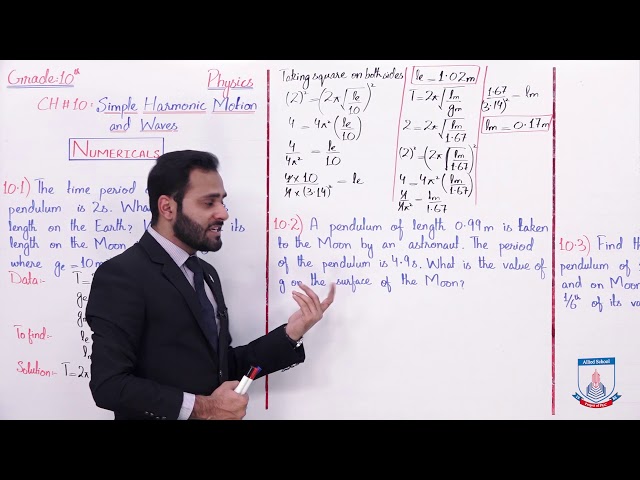 Grade:10th Physics
CH#10: Simple Harmonic Motion
and Waves
NUMERICALS
10.1) The time period
pendulum is 2s. What
length on the Earth? its
length on the Moon
where ge=10m
Data:- T=
ge
To find:-
Solution:- T=2π
Taking square on both sides
(2)²=(2π√le/10)²
4=4π²(le/10)
4/4π²=le/10
4×10/4×(3.14)²=le
le=1.02m
T=2π√lm/gm
2=2π√lm/1.67
(2)²=(2π√lm/1.67)²
4=4π²(lm/1.67)
4/4π²=lm/1.67
1.67/(3.14)²=lm
lm=0.17m
10.2) A pendulum of length 0.99m is taken
to the Moon by an astronaut. The period
of the pendulum is 4.9s. What is the value of
g on the surface of the Moon?
10.3) Find
pendulum of
and on Moon
1/6th of its va
Allied School